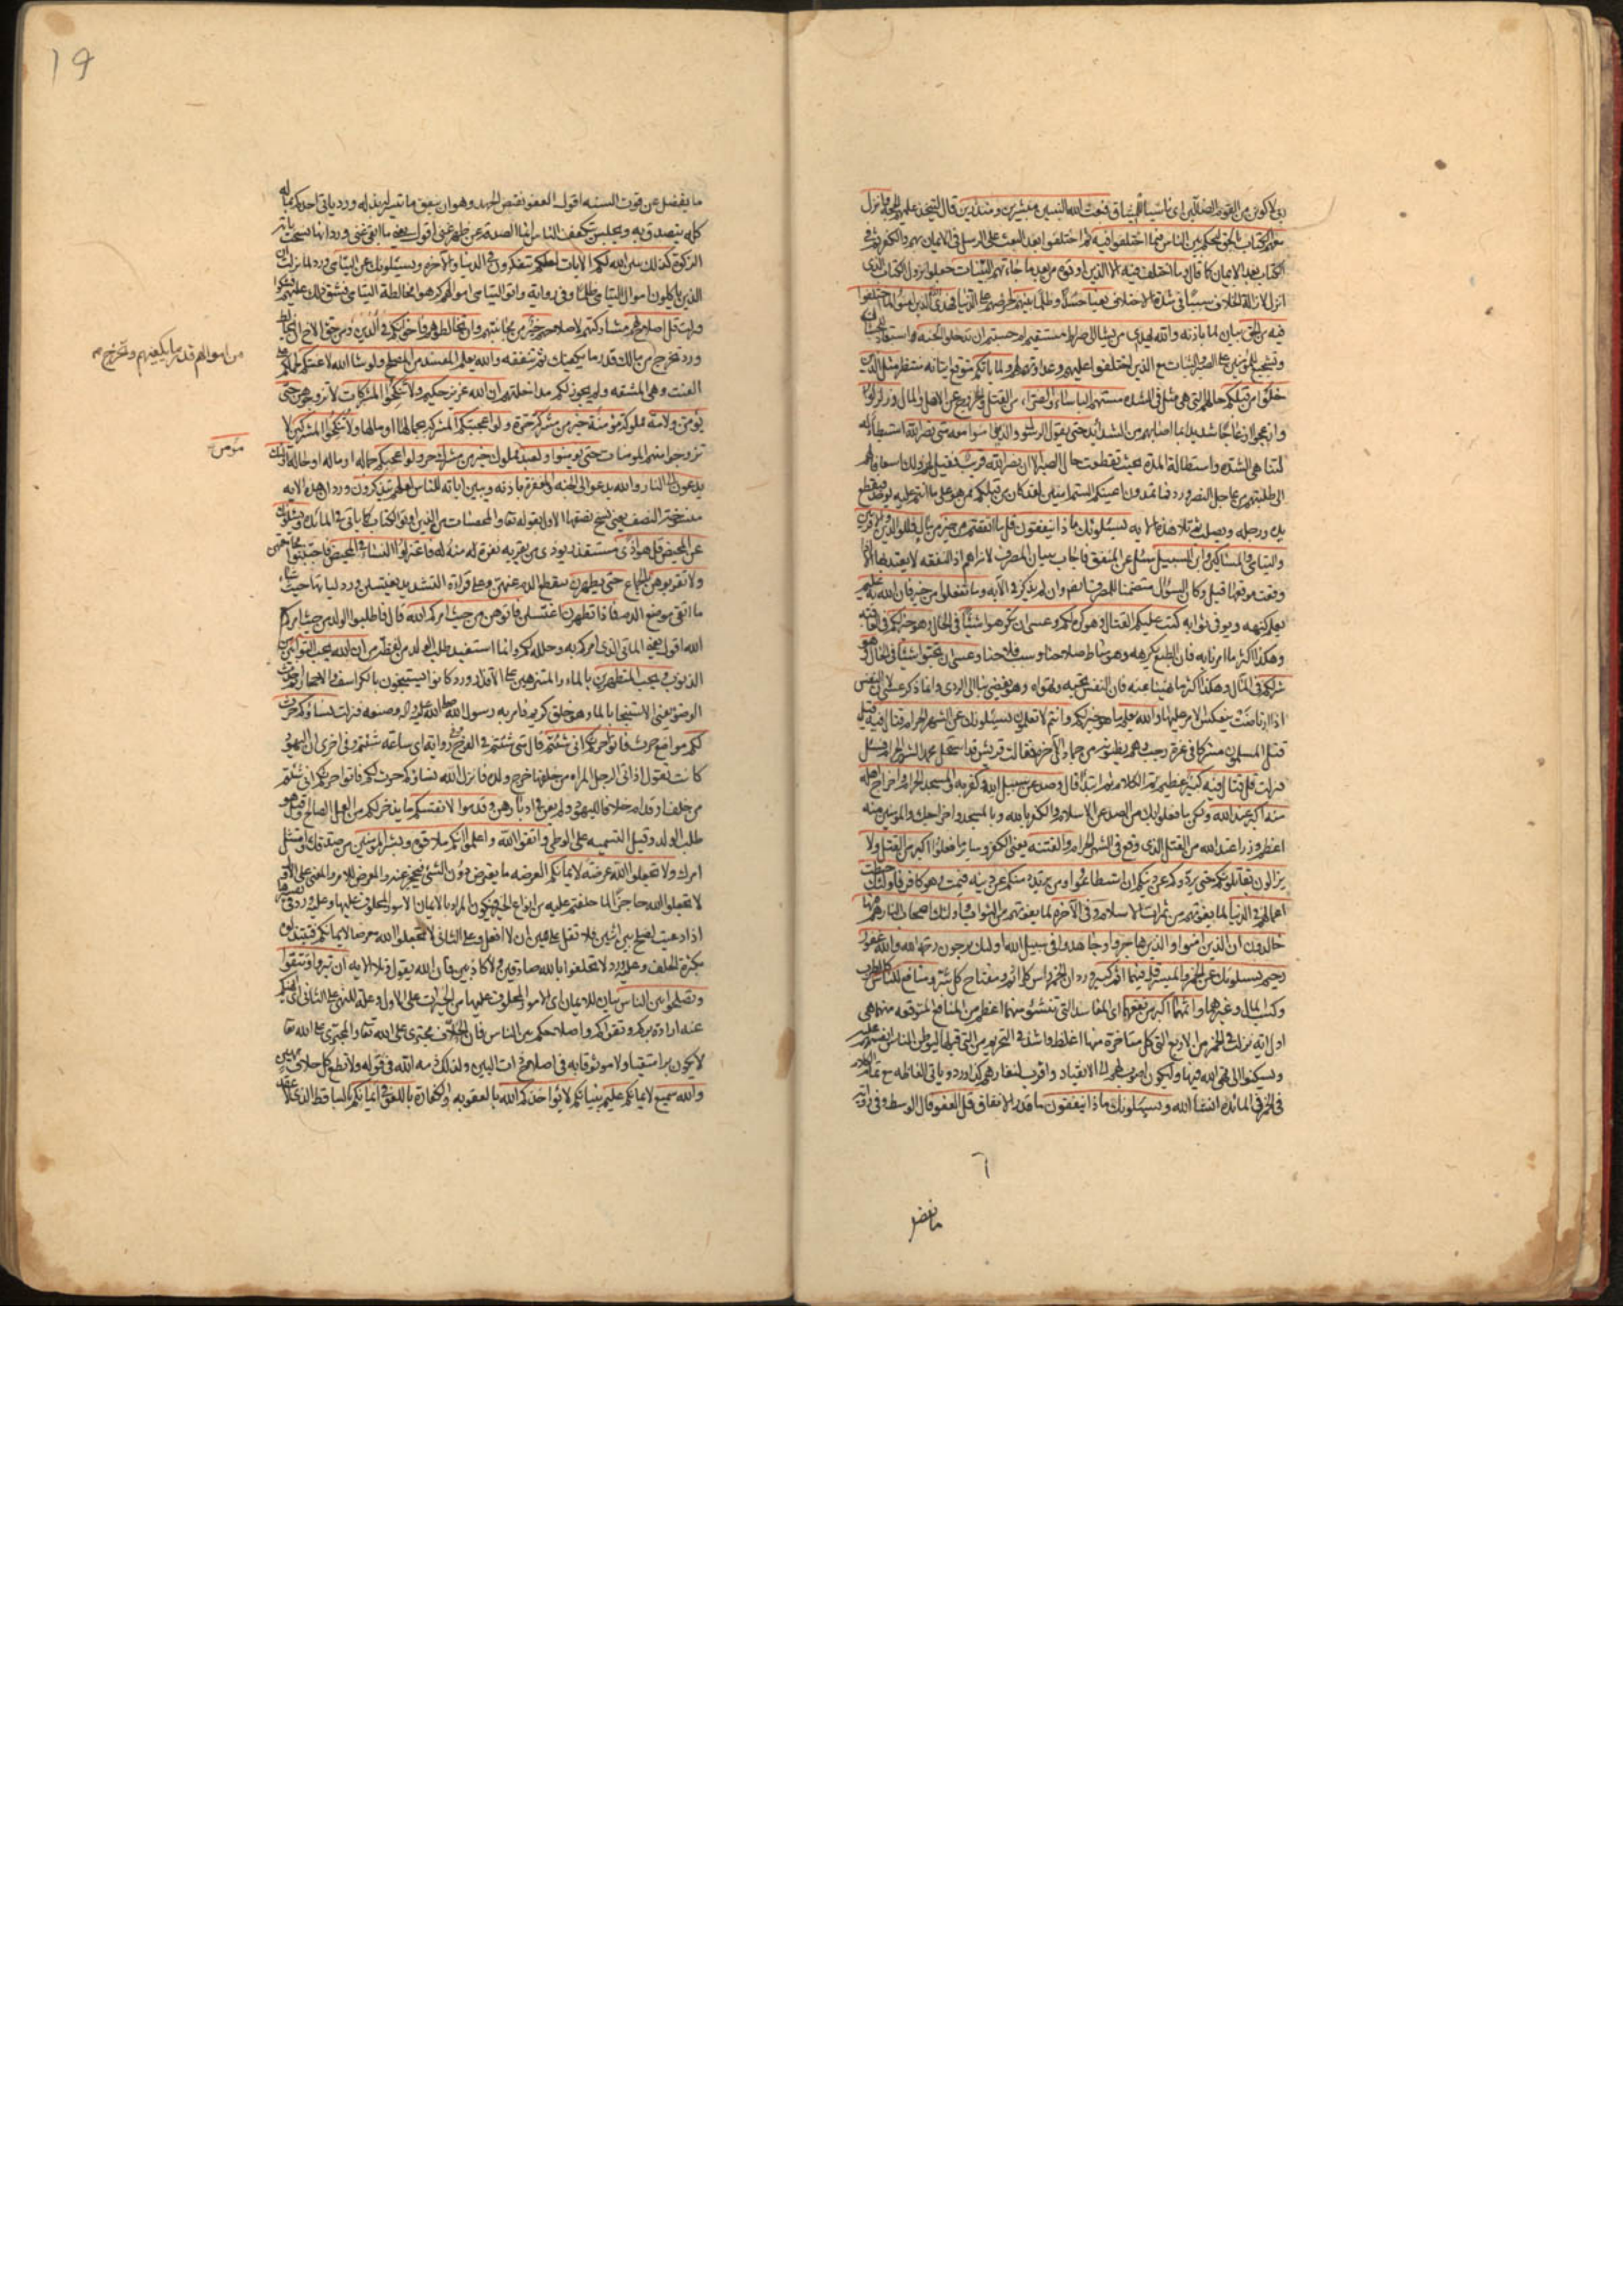 ربي لأكونن من القوم الضالين اي ناسيا للميثاق فبعث الله النبيين مبشرين ومنذرين قال ليتخذ عليهم الحجة وانزل
معهم الكتاب بالحق ليحكم بين الناس فيما اختلفوا فيه
الكتاب بعد الايمان كما قال وما اختلف فيه الا الذين اوتوه من بعد ما جاءتهم البينات جعلوا نزول الكتاب الذي
انزل لازالة الخلاف سببا في شدة الاختلاف بغيا حسدا وظلما بينهم لحرصهم على الدنيا فهدى الله الذين امنوا لما اختلفوا
فيه من الحق بيان لما باذنه والله يهدي من يشاء الى صراط مستقيم ام حسبتم ان تدخلوا الجنة
وتشجيع للمؤمنين على الصبر والثبات مع الذين اختلفوا عليهم وعداوتهم لهم ولما ياتكم متوقع اتيانه منتظر مثل الذين
خلوا من قبلكم حالهم التي هي مثل في الشدة مستهم الباساء والضراء من القتل والخروج عن الاهل والمال وزلزلوا
وازعجوا ازعاجا شديدا بما اصابهم من الشدائد حتى يقول الرسول والذين امنوا معه متى نصر الله استبطاء له
لتناهي الشدة واستطالة المدة بحيث تقطعت حال الصبر الا ان نصر الله قريب فقيل لهم ذلك اسعافا لهم
الى طلبتهم من عاجل النصر ورد فما تمدون اعينكم الستم امنين لقد كان من قبلكم ممن هو على ما انتم عليه يوخذ فيقطع
يده ورجله ويصلب ثم تلا هذه الاية يسئلونك ماذا ينفقون قل ما انفقتم من خير من مال فللوالدين والاقربين
واليتامى والمساكين وابن السبيل سئل عن المنفق فاجاب ببيان المصرف لانه اهم اذ النفقة لا يعتد بها الا اذا
وقعت موقعها قيل وكان السؤال متضمنا للمصرف ايضا وان لم يذكر في الاية وما تفعلوا من خير فان الله به عليم
يعلم كنهه ويوفي ثوابه كتب عليكم القتال وهو كره لكم وعسى ان تكرهوا شيئا في الحال وهو خير لكم في العاقبة
وهكذا اكثر ما امروا به فان الطبع يكرهه وهو مناط صلاحنا وسبب فلاحنا وعسى ان تحبوا شيئا في الحال وهو
شر لكم في المال وهكذا اكثر ما نهينا عنه فان النفس تحبه وتهواه وهو يفضي بنا الى الردى وانما ذكر عسى لان النفس
اذا ارتاضت ينعكس الامر عليها والله يعلم ما هو خير لكم وانتم لا تعلمون يسئلونك عن الشهر الحرام قتال فيه قيل
قتل المسلمون مشركا في غرة رجب وهم يظنونه من جمادى الآخرة فقالت قريش قد استحل محمد الشهر الحرام فسئل
فنزلت قل قتال فيه كبير عظيم تم الكلام ثم ابتدأ فقال وصد عن سبيل الله وكفر به والمسجد الحرام واخراج اهله
منه اكبر عند الله ولكن ما فعلوا بك من الصد عن الاسلام والكفر بالله وبالمسجد واخراجك والمؤمنين منه
اعظم وزرا عند الله من القتل الذي وقع في الشهر الحرام والفتنة يعني الكفر وساير ما فعلوا اكبر من القتل ولا
يزالون يقاتلونكم حتى يردوكم عن دينكم ان استطاعوا ومن يرتدد منكم عن دينه فيمت وهو كافر فاولئك حبطت
اعمالهم في الدنيا لما يفوتهم من ثمرات الاسلام وفي الآخرة لما يفوتهم من الثواب واولئك اصحاب النار هم فيها
خالدون ان الذين امنوا والذين هاجروا وجاهدوا في سبيل الله اولئك يرجون رحمة الله والله غفور
رحيم يسئلونك عن الخمر والميسر قل فيهما اثم كبير ورد ان الخمر راس كل اثم ومفتاح كل شر ومنافع للناس كالطرب
وكسب المال وغيرهما واثمهما اكبر من نفعهما اي المفاسد التي تنشئ منهما اعظم من المنافع المتوقعة منهما هي
اول اية نزلت في الخمر من الاربع التي كل متاخرة منها اغلظ واشد في التحريم من التي قبلها ليوطن الناس انفسهم عليه
ويسكنوا الى نهي الله فيها وليكون اصوب لهم الى الانقياد واقرب لنفارهم كذا ورد وياتي الفاظه مع تمام الكلام
في الخمر في المائدة انشاء الله ويسئلونك ماذا ينفقون ما قدر الانفاق قل العفو قال الوسط وفي رواية
٦
ما يفضل
19
ما يفضل عن قوت السنة اقول العفو نقيض الجهد وهو ان ينفق ما تيسر له بذله ورد ياتي احدكم بماله
كله يتصدق به ويجلس يتكفف الناس انما الصدقة عن ظهر غنى اقول يعني ما ابقى غنى ورد انها نسخت باية
الزكوة كذلك يبين الله لكم الآيات لعلكم تتفكرون في الدنيا والآخرة ويسئلونك عن اليتامى ورد لما نزلت ان
الذين ياكلون اموال اليتامى ظلما وفي رواية واتوا اليتامى اموالهم كرهوا مخالطة اليتامى فشق ذلك عليهم فشكوا
فنزلت قل اصلاح لهم مشاركتهم لاصلاحهم خير من مجانبتهم وان تخالطوهم فاخوانكم في الدين ومن حق الاخ ان يخالط
ورد تخرج من مالك قدر ما يكفيك ثم تنفقه والله يعلم المفسد من المصلح ولو شاء الله لاعنتكم لحملكم على
العنت وهي المشقة ولم يجوز لكم مداخلتهم ان الله عزيز حكيم ولا تنكحوا المشركات لا تزوجوهن حتى
يؤمن ولامة مملوكة مؤمنة خير من مشركة حرة ولو اعجبتكم المشركة بجمالها او مالها ولا تنكحوا المشركين لا
تزوجوا منهم المومنات حتى يومنوا ولعبد مملوك خير من مشرك حر ولو اعجبكم جماله او ماله او حاله اولئك
يدعون الى النار والله يدعو الى الجنة والمغفرة باذنه ويبين آياته للناس لعلهم يتذكرون ورد ان هذه الاية
منسوخة النصف يعني نسخ نصفها الاول بقوله تعالى والمحصنات من الذين اوتوا الكتاب كما ياتي في المائدة ويسئلونك
عن المحيض قل هو اذى مستقذر يوذي من يقربه نفرة له منه له فاعتزلوا النساء في المحيض فاجتنبوا مجامعتهن
ولا تقربوهن بالجماع حتى يطهرن ينقطع الدم عنهن وعلى قراءة التشديد يغتسلن ورد لياتها حيث شاء
ما اتقى موضع الدم فاذا تطهرن اغتسلن فاتوهن من حيث امركم الله قال فاطلبوا الولد من حيث امركم
الله اقول يعني الماتى الذي امركم به وحلله لكم وانما استفيد طلب الولد من لفظة من ان الله يحب التوابين من
الذنوب ويحب المتطهرين بالماء والمتنزهين عن الاقذار ورد كانوا يستنجون بالكراسف والاحجار ثم احدث
الوضوء يعني الاستنجاء بالماء وهو خلق كريم فامر به رسول الله صلى الله عليه واله وصنعه فنزلت نساؤكم حرث
لكم مواضع حرث فاتوا حرثكم انى شئتم قال متى شئتم في الفرج وفي رواية اي ساعة شئتم وفي اخرى ان اليهود
كانت تقول اذا اتى الرجل المراة من خلفها خرج ولده فانزل الله نساؤكم حرث لكم فاتوا حرثكم انى شئتم
من خلف او قدام خلافا لليهود ولم يعن في ادبارهن وقدموا لانفسكم ما يدخر لكم من العمل الصالح وقيل هو
طلب الولد وقيل التسمية على الوطي واتقوا الله واعلموا انكم ملاقوه وبشر المؤمنين من صدقك وامتثل
امرك ولا تجعلوا الله عرضة لايمانكم العرضة ما يعرض دون الشيء فيحجز عنه والمعرض للامر والمعنى على الاول
لا تجعلوا الله حاجزا لما حلفتم عليه من انواع الخير فيكون المراد بالايمان الامور المحلوف عليها وعليه ورد في تفسيرها
اذا دعيت لصلح بين اثنين فلا تقل علي يمين ان لا افعل وعلى الثاني لا تجعلوا الله معرضا لايمانكم فتبتذلوه
بكثرة الحلف وعليه ورد لا تحلفوا بالله صادقين ولا كاذبين فان الله يقول وتلا الاية ان تبروا وتتقوا
وتصلحوا بين الناس بيان للايمان اي الامور المحلوف عليها من الخيرات على الاول وعلة للنهي على الثاني اي انهيكم
عنه ارادة بركم وتقواكم واصلاحكم بين الناس فان الحلاف مجترئ على الله تعالى والمجترئ على الله تعالى
لا يكون برا متقيا ولا موثوقا به في اصلاح ذات البين ولذلك ذمه الله في قوله ولا تطع كل حلاف مهين
والله سميع لايمانكم عليم بنياتكم لا يؤاخذكم الله بالعقوبة والكفارة باللغو في ايمانكم الساقط الذي لا عقد
من اموالهم قدر ما يكفيهم وتخرج
مؤمن